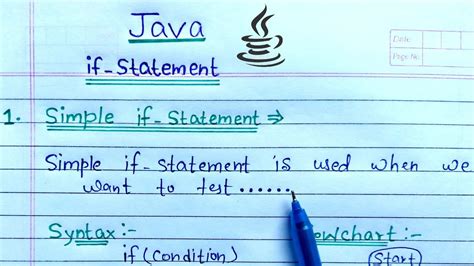 Java
Date:
Page No:
if-Statement
1. Simple if-Statement ⇒
Simple if-statement is used when we
want to test.......
Syntax:-
if (Condition)
Start